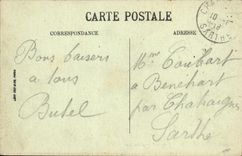 CARTE POSTALE
CORRESPONDANCE
ADRESSE
Bons baisers
à tous
Butel
Mme Toutbart
à Bénéhart
par Chahaignes
Sarthe